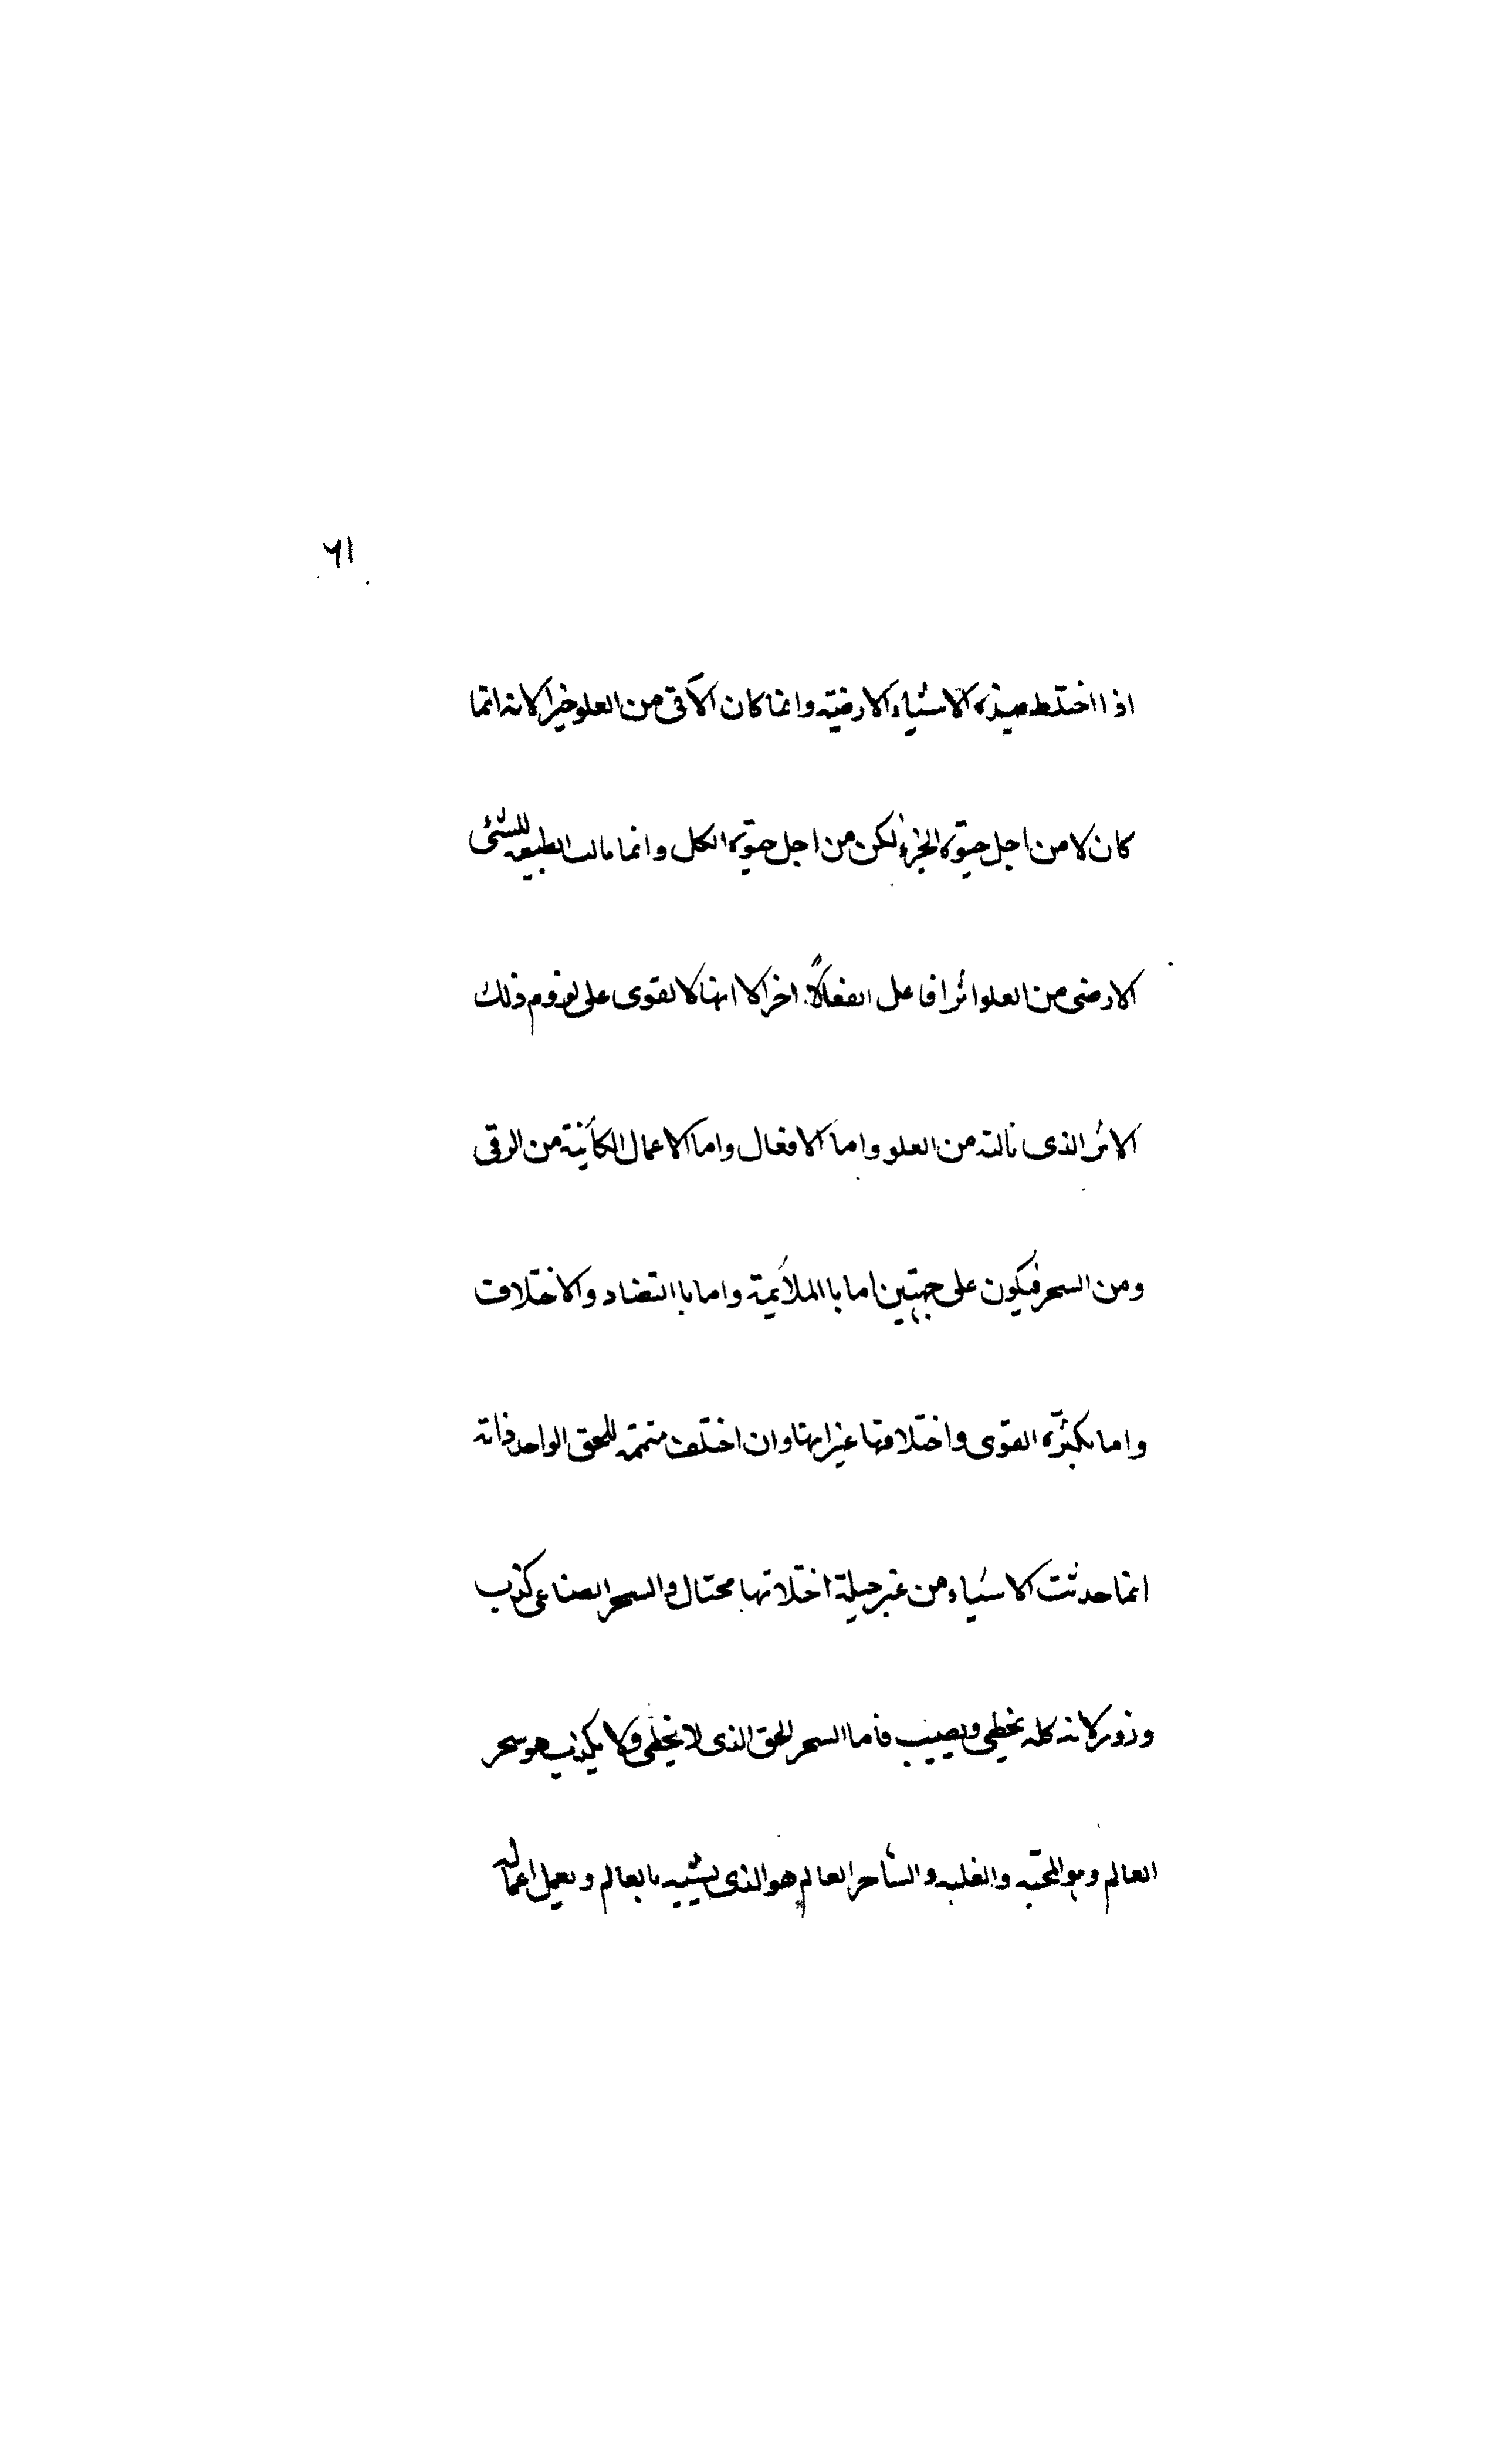 ٦١
اذا اختلط بهذه الاشياء الارضية وانما كان الآتى من العلو خيرا لانه انما
كان لا من اجل حيوة الجزء لكن من اجل حيوة الكل وانما نالت الطبيعه للشئ
الارضى من العلو اثرا فاعل انفعالًا اخر الا انها لا تقوى على لزوم ذلك
الاثر الذى نالته من العلو واما الافعال واما الاعمال الكائنية من الرقى
ومن السحر فيكون على جهتين اما باالملائمة واما باالتضاد والاختلاف
واما بكثرة القوى واختلافها غير انها وان اختلف متممه للحق الواحد فانه
انما حدثت الاشياء من غير حيلة احتالها محتال والسحر الصناعى كذب
وزور لانه كله يخطى ويصيب فأما السحر الحق الذى لا يخطى ولا يكذب هو سحر
العالم وهو المحبه والغلبه والساحر العالم هو الذى يشبه بالعالم ويعمل اعماله